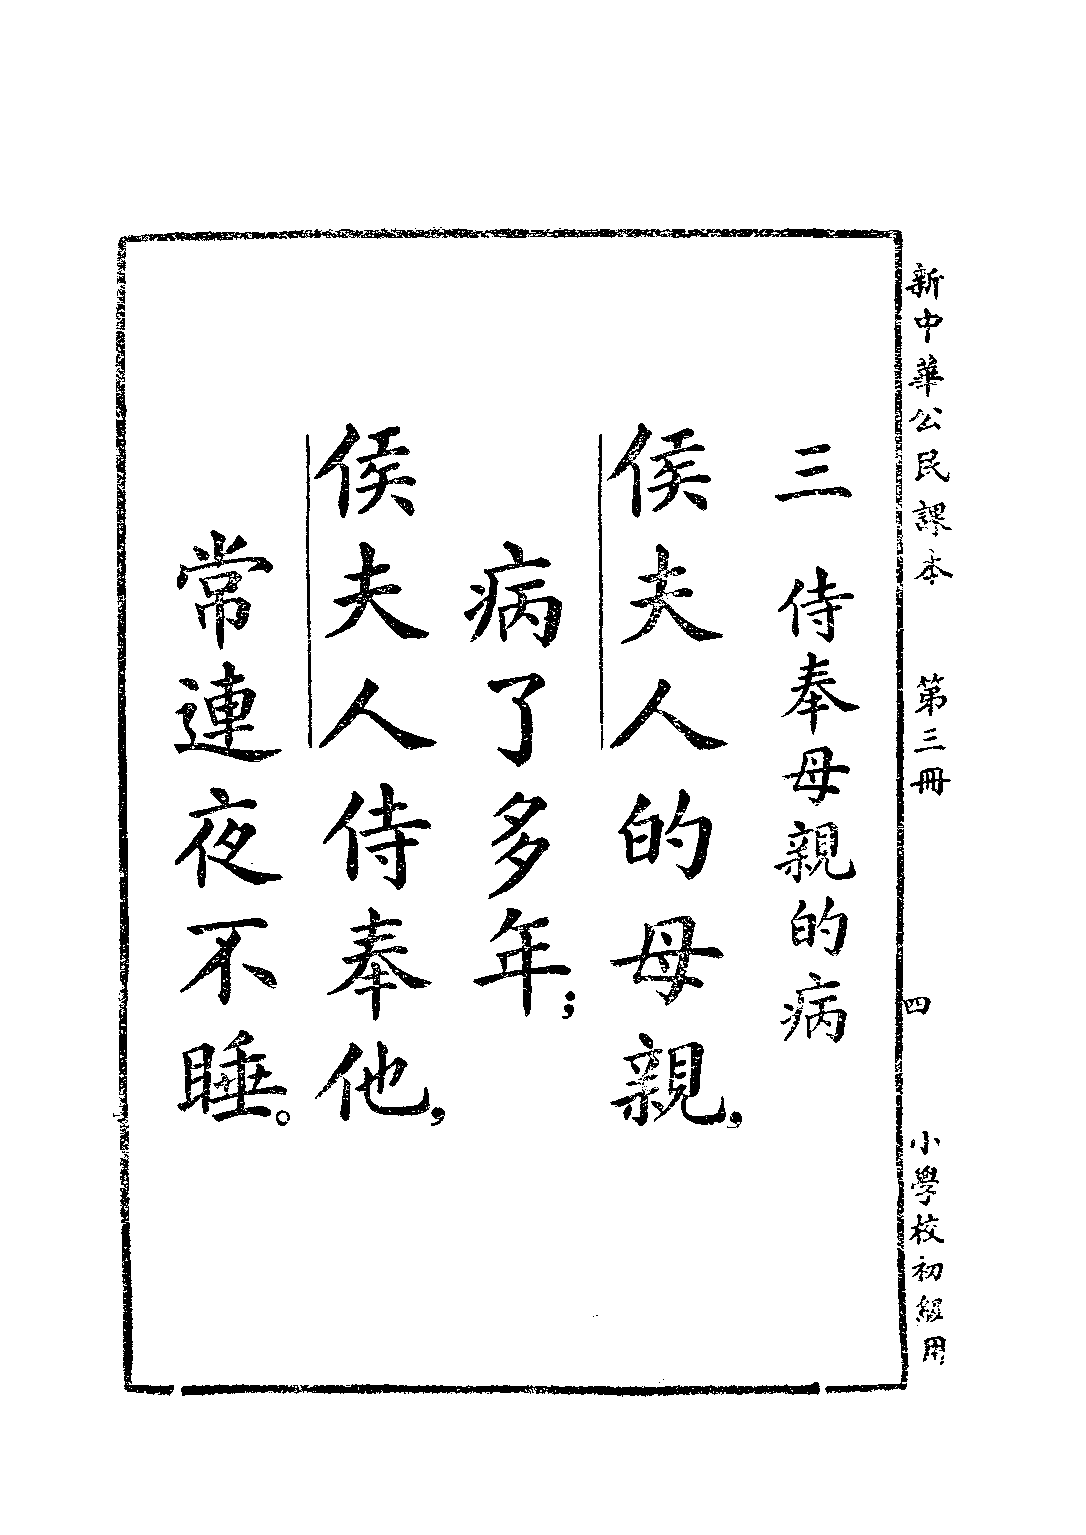 新中華公民課本 第三冊 四 小學校初級用
三 侍奉母親的病
侯夫人的母親，
病了多年；
侯夫人侍奉他，
常連夜不睡。